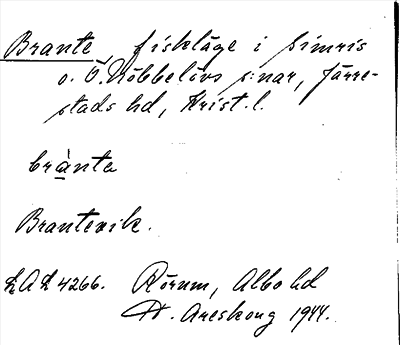 Brante, fiskläge i Simris
o. Ö. Nöbbelövs s:nar, Järre-
stads hd, Krist. l.
brànta
Brantevik.
LAL 4266. Rörum, Albo hd
W. Areskoug 1944.